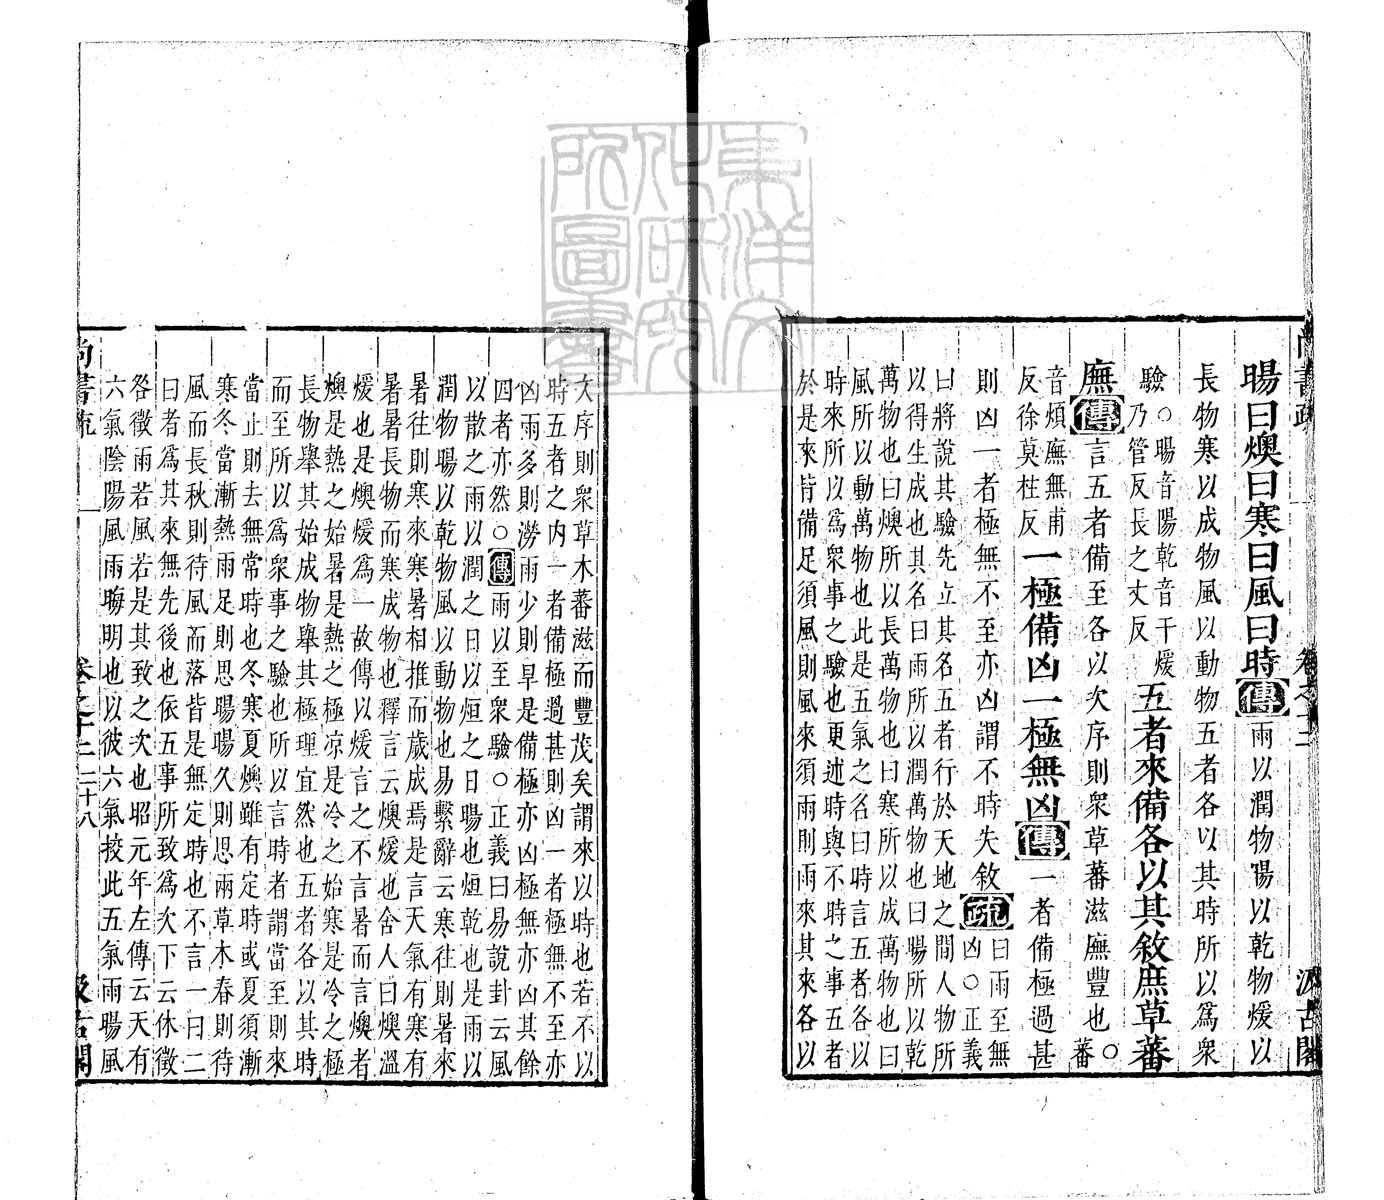 暘曰燠曰寒曰風曰時傳雨以潤物暘以乾物煖以
長物寒以成物風以動物五者各以其時所以爲衆
驗○暘音陽乾音干煖
乃管反長之丈反
五者來備各以其敘庶草蕃
廡傳言五者備至各以次序則衆草蕃滋廡豐也○蕃
音煩廡無甫
反徐莫杜反
一極備凶一極無凶傳一者備極過甚
則凶一者極無不至亦凶謂不時失敘疏
曰雨至無
凶○正義
曰將說其驗先立其名五者行於天地之間人物所
以得生成也其名曰雨所以潤萬物也曰暘所以乾
萬物也曰燠所以長萬物也曰寒所以成萬物也曰
風所以動萬物也此是五氣之名曰時言五者各以
時來所以爲衆事之驗也更述時與不時之事五者
於是來皆備足須風則風來須雨則雨來其來各以
次序則衆草木蕃滋而豐茂矣謂來以時也若不以
時五者之內一者備極過甚則凶一者極無不至亦
凶雨多則澇雨少則旱是備極亦凶極無亦凶其餘
四者亦然○傳雨以至衆驗○正義曰易說卦云風
以散之雨以潤之日以烜之日暘也烜乾也是雨以
潤物暘以乾物風以動物也易繫辭云寒往則暑來
暑往則寒來寒暑相推而歲成焉是言天氣有寒有
暑暑長物而寒成物也釋言云燠煖也舍人曰燠溫
煖也是燠煖爲一故傳以煖言之不言暑而言燠者
燠是熱之始暑是熱之極凉是冷之始寒是冷之極
長物舉其始成物舉其極理宜然也五者各以其時
而至所以爲衆事之驗也所以言時者謂當至則來
當止則去無常時也冬寒夏燠雖有定時或夏須漸
寒冬當漸熱雨足則思暘暘久則思雨草木春則待
風而長秋則待風而落皆是無定時也不言一曰二
曰者爲其來無先後也依五事所致爲次下云休徵
咎徵雨若風若是其致之次也昭元年左傳云天有
六氣陰陽風雨晦明也以彼六氣挍此五氣雨暘風
尚書疏
卷之十二
二十八
汲古閣